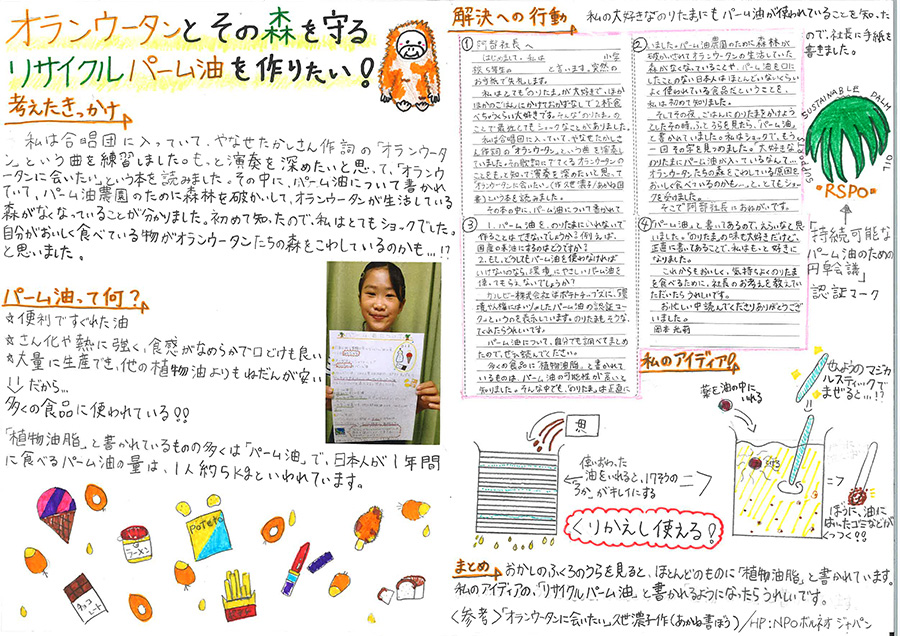 オランウータンとその森を守る
リサイクルパーム油を作りたい!
考えたきっかけ
私は合唱団に入っていて、やなせたかしさん作詞の「オランウー
タン」という曲を練習しました。もっと演奏を深めたいと思って、「オランウ
ータンに会いたい」という本を読みました。その中に、パーム油について書かれ
ていて、パーム油農園のために森林を破かいして、オランウータンが生活している
森がなくなっていることが分かりました。初めて知ったので、私はとてもショックでした。
自分がおいしく食べている物がオランウータンたちの森をこわしているのかも…!?
と思いました。
パーム油って何?
☆便利ですぐれた油
☆さん化や熱に強く、食感がなめらかで口どけも良い
☆大量に生産でき、他の植物油よりもねだんが安い
だから…
多くの食品に使われている!!
「植物油脂」と書かれているものの多くは「パーム油」で、日本人が1年間
に食べるパーム油の量は、1人約5kgといわれています。
ラーメン
POTETO
チョコレート
解決への行動
私の大好きなのりたまにもパーム油が使われていることを知った
ので、社長に手紙を
書きました。
① 阿部社長へ
はじめまして。私は 小学
校5年生の と言います。突然の
お手紙で失礼します。
私はとても「のりたま」が大好きで、ほか
ほかのごはんにかけておかずなしで2杯食
べちゃうくらい大好きです。そんな「のりたま」の
ことで最近とてもショックなことがありました。
私は合唱団に入っていて、やなせたかしさ
ん作詞の「オランウータン」という曲を練習し
ていました。その歌詞にでてくるオランウータンの
ことをもっと知って演奏を深めたいと思って
「オランウータンに会いたい」(久世濃子/あかね書
房)という本を読みました。
その本の中に、パーム油について書かれて
② いました。パーム油農園のために森林が
破かいされてオランウータンの生活していた
森がなくなっていることや、パーム油を口に
したことのない日本人はほとんどいないくらい
よく使われている食品だということを、
私は初めて知りました。
そしてその夜、ごはんにのりたまをかけようと
したその時、ふとうらを見たら、「パーム油」
と書かれていました。私はショックで、もう
一回その字を見つめました。大好きな
のりたまにパーム油が入っているなんて…
オランウータンたちの森をこわしている原因を
おいしく食べているのかも…。と、とてもショッ
クを受けました。
そこで阿部社長におねがいです。
③ 1.パーム油を、のりたまにいれないで
作ることはできないでしょうか?例えば、
国産の米油にするのはどうですか?
2.もし、どうしてもパーム油を使わなければ
いけないのなら、環境にやさしいパーム油を
使ってもらえないでしょうか?
カルビー株式会社はポテトチップスに、「環
境や人権にはいりょしたパーム油の認証マー
ク」というのを表示しています。のりたまもそうな
ってくれたらうれしいです。
パーム油について、自分でも調べてまとめ
たので、ぜひ読んでください。
多くの食品に「植物油脂」と書かれて
いるものは、パーム油の可能性が高いと
知りました。そんな中でも「のりたま」は正直に
④ 「パーム油」と書いてあるので、えらいなと思
いました。「のりたま」の味も大好きだけど、
正直に書いてあることで、私はもっと好きに
なりました。
これからもおいしく、気持ちよくのりたま
を食べるために、社長のお考えを教えてい
ただいたらうれしいです。
お忙しい中読んでくださりありがとうござ
いました。
SUPPORTS SUSTAINABLE PALM OIL
RSPO
「持続可能な
パーム油のための
円卓会議」
認証マーク
私のアイディア!
使いおわった
油をいれると、17そうの
ろかがキレイにする
薬を油の中に
いれる
せんようのマジカ
ルスティックで
まぜると…!?
ぼうに、油に
はいったゴミなどが
くっつく!!
くりかえし使える!
まとめ おかしのふくろのうらを見ると、ほとんどのものに「植物油脂」と書かれています。
私のアイディアの、「リサイクルパーム油」と書かれるようになったらうれしいです。
<参考>「オランウータンに会いたい」久世濃子作(あかね書ぼう)/HP:NPOボルネオジャパン